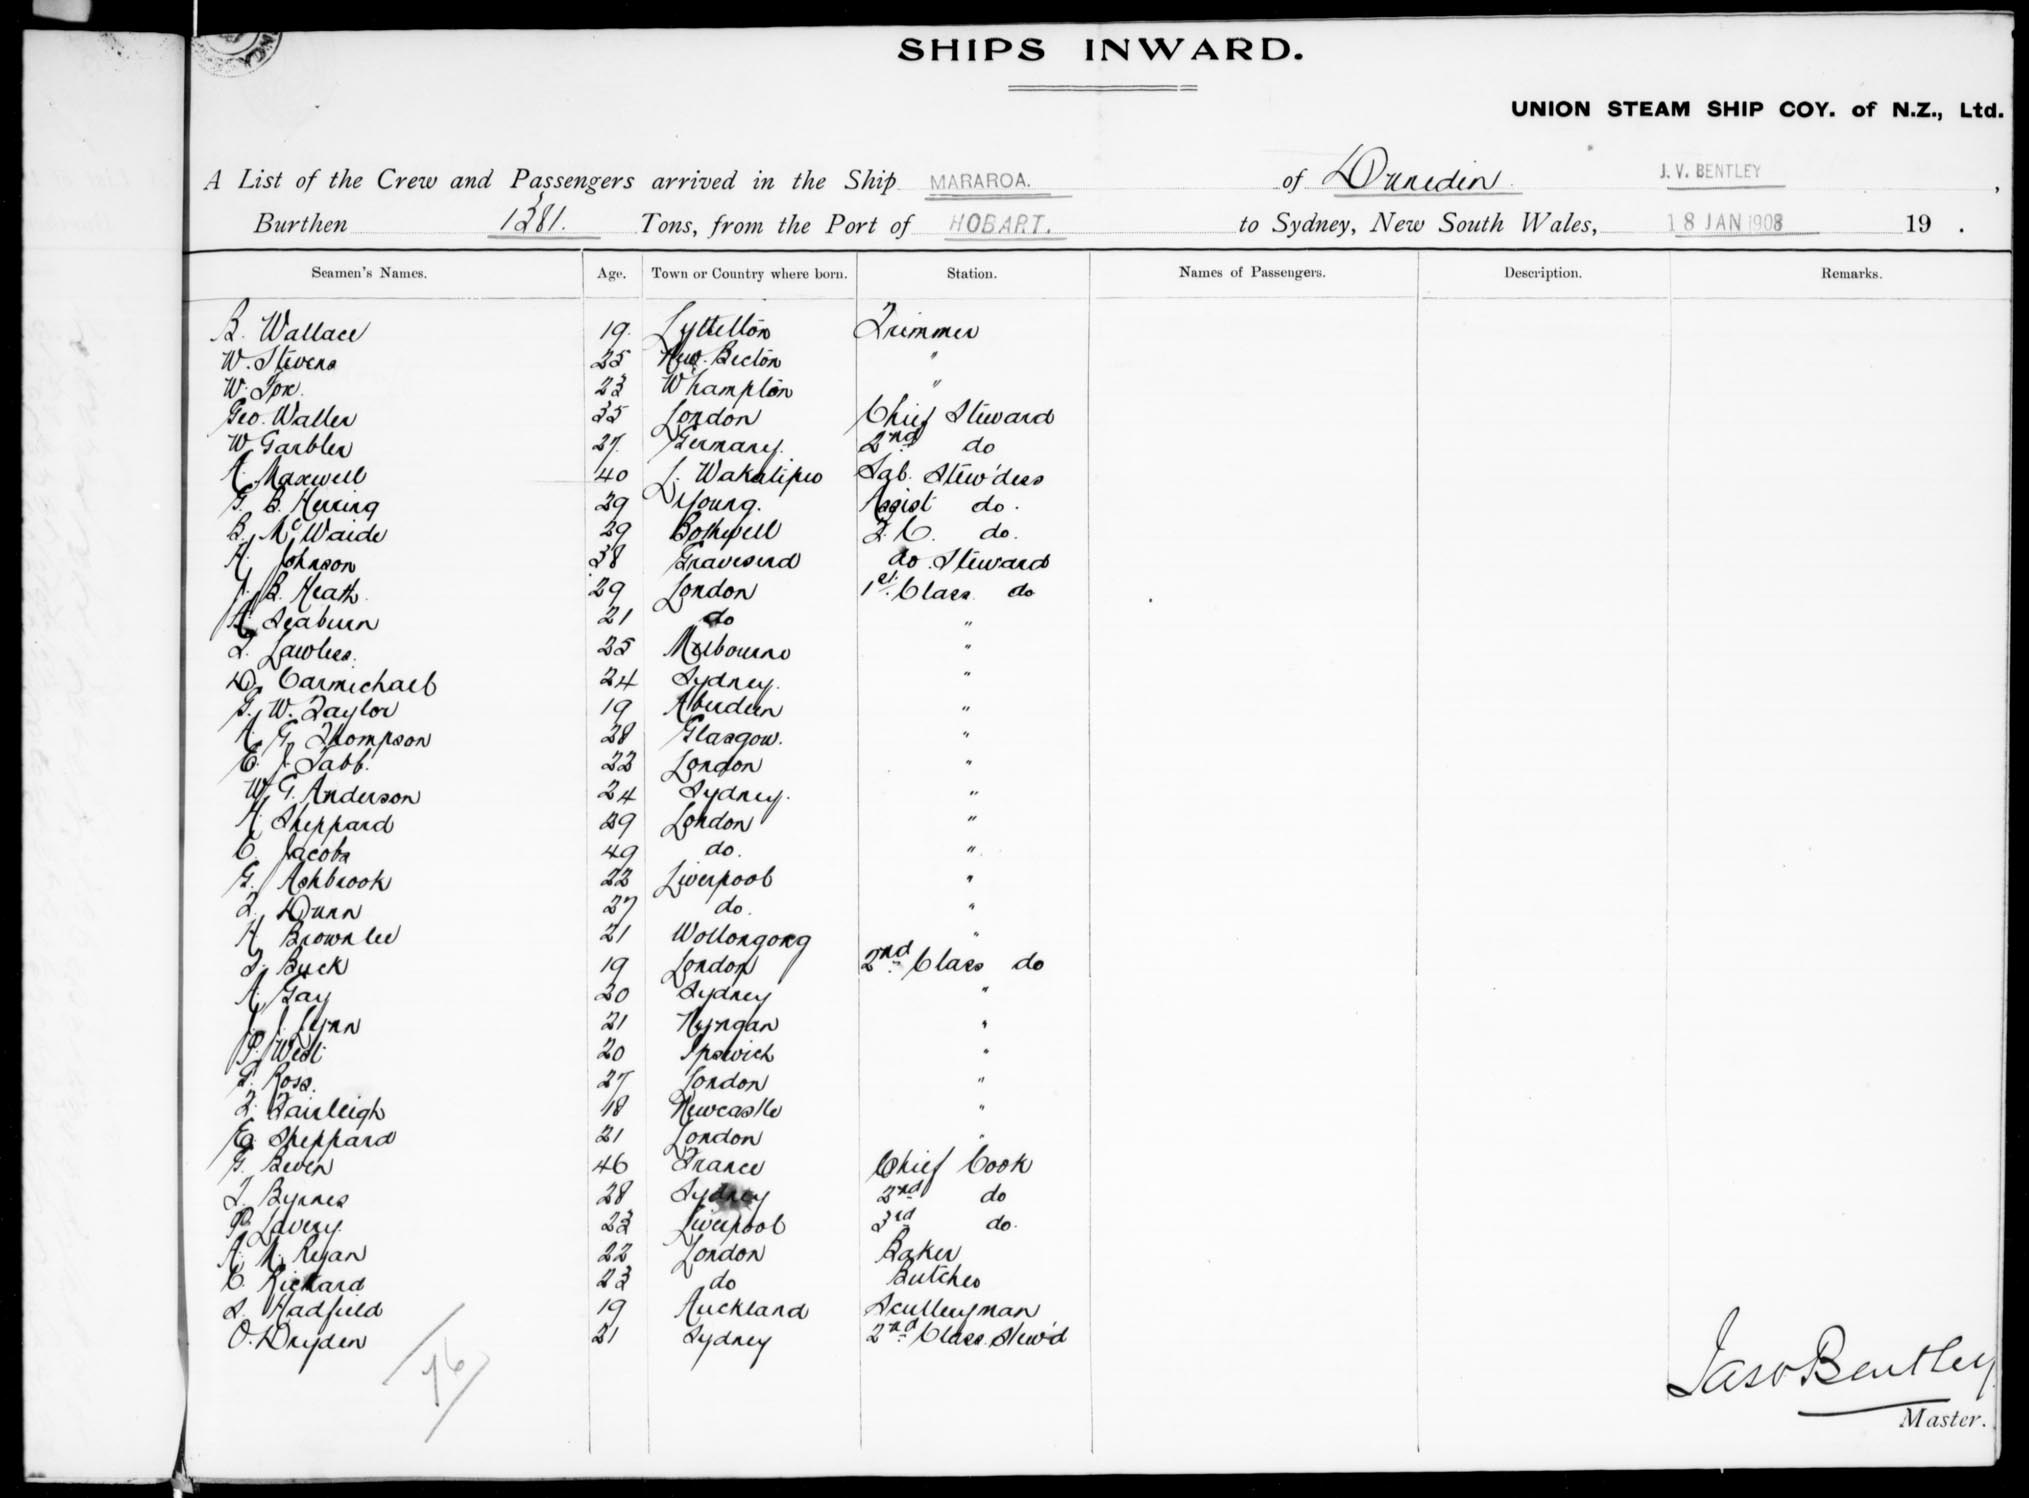 SHIPS INWARD.
UNION STEAM SHIP COY. of N.Z., Ltd.
A List of the Crew and Passengers arrived in the Ship MARAROA. of Dunedin. J. V. BENTLEY,
Burthen 1381. Tons, from the Port of HOBART. to Sydney, New South Wales, 18 JAN 1908 19 .
Seamen's Names. Age. Town or Country where born. Station. Names of Passengers. Description. Remarks.
B. Wallace 19. Lyttelton Trimmer
W. Stevens 25 New. Becton "
W. Fox. 23 Whampton "
Geo. Waller 35 London Chief Steward
W Garbler 27. Germany. 2nd do
A. Maxwell 40 L. Wakatipu Sab. Stew'dess
G. B. Herring 29 Young. Assist do.
B. McWaide 29 Bothwell 2. C. do.
A. Johnson 38 Gravesend do. Steward
J. B. Heath. 29 London 1st. Class. do
A. Seaburn 21 do "
T. Lawless. 25 Melbourne "
D. Carmichael 24 Sydney. "
G. W. Taylor 19 Aberdeen "
A. G. Thompson 28 Glasgow. "
E. J. Tabb. 22 London "
W. G. Anderson 24 Sydney. "
A. Sheppard 29 London "
C. Jacobs 49 do. "
G. Ashbrook 22 Liverpool "
T. Dunn 27 do. "
A. Brownlee 21 Wollongong "
S. Buck 19 London 2nd Class do
A. Gay 20 Sydney "
J. J. Lynn 21 Nyngan "
P. West 20 Ipswich "
G. Ross. 27 London "
F. Fairleigh 18 Newcastle "
Ed. Sheppard 21 London "
G. Beven 46 France Chief Cook
T. Byrnes 28 Sydney 2nd do
P. Lavery. 23 Liverpool 3rd do.
A. M. Ryan 22 London Baker
C. Rickard 23 do Butcher
S. Hadfield 19 Auckland Sculleryman
O. Dryden 21 Sydney 2nd Class. Stew'd
76
Jas V Bentley
Master.